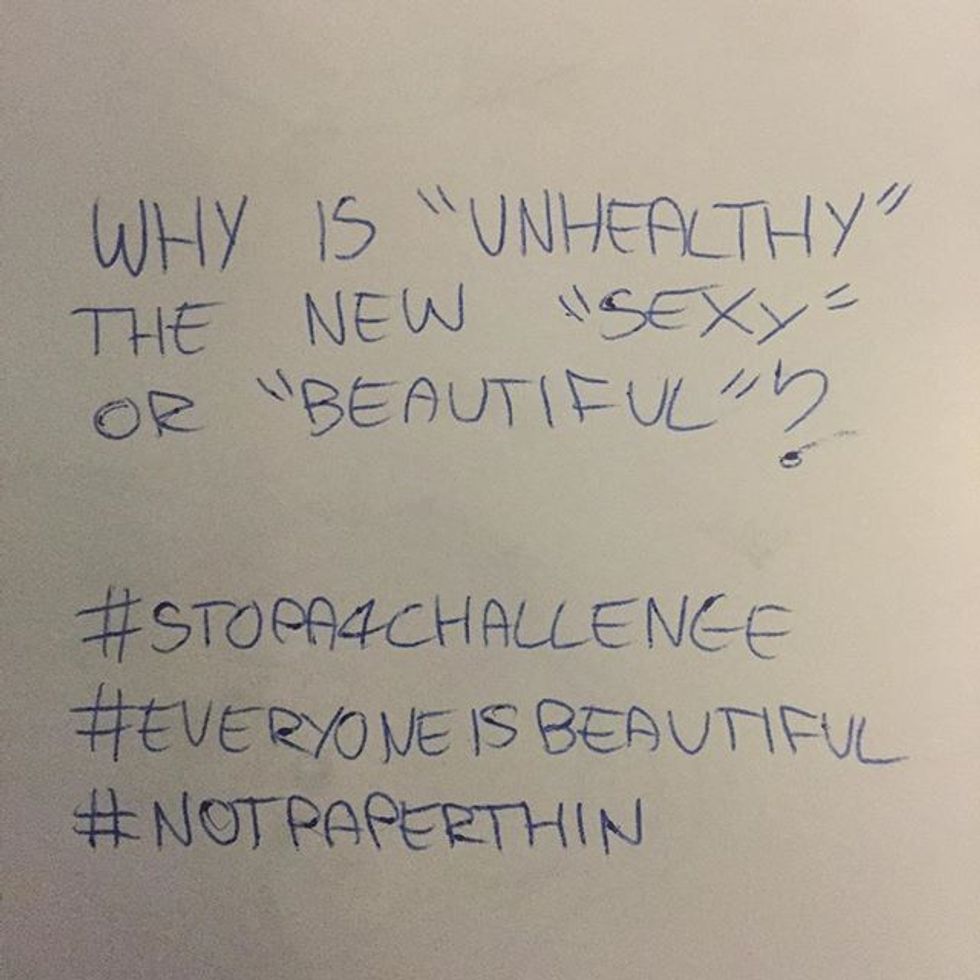 WHY IS "UNHEALTHY"
THE NEW "SEXY"
OR "BEAUTIFUL"?
#STOPA4CHALLENGE
#EVERYONEISBEAUTIFUL
#NOTPAPERTHIN